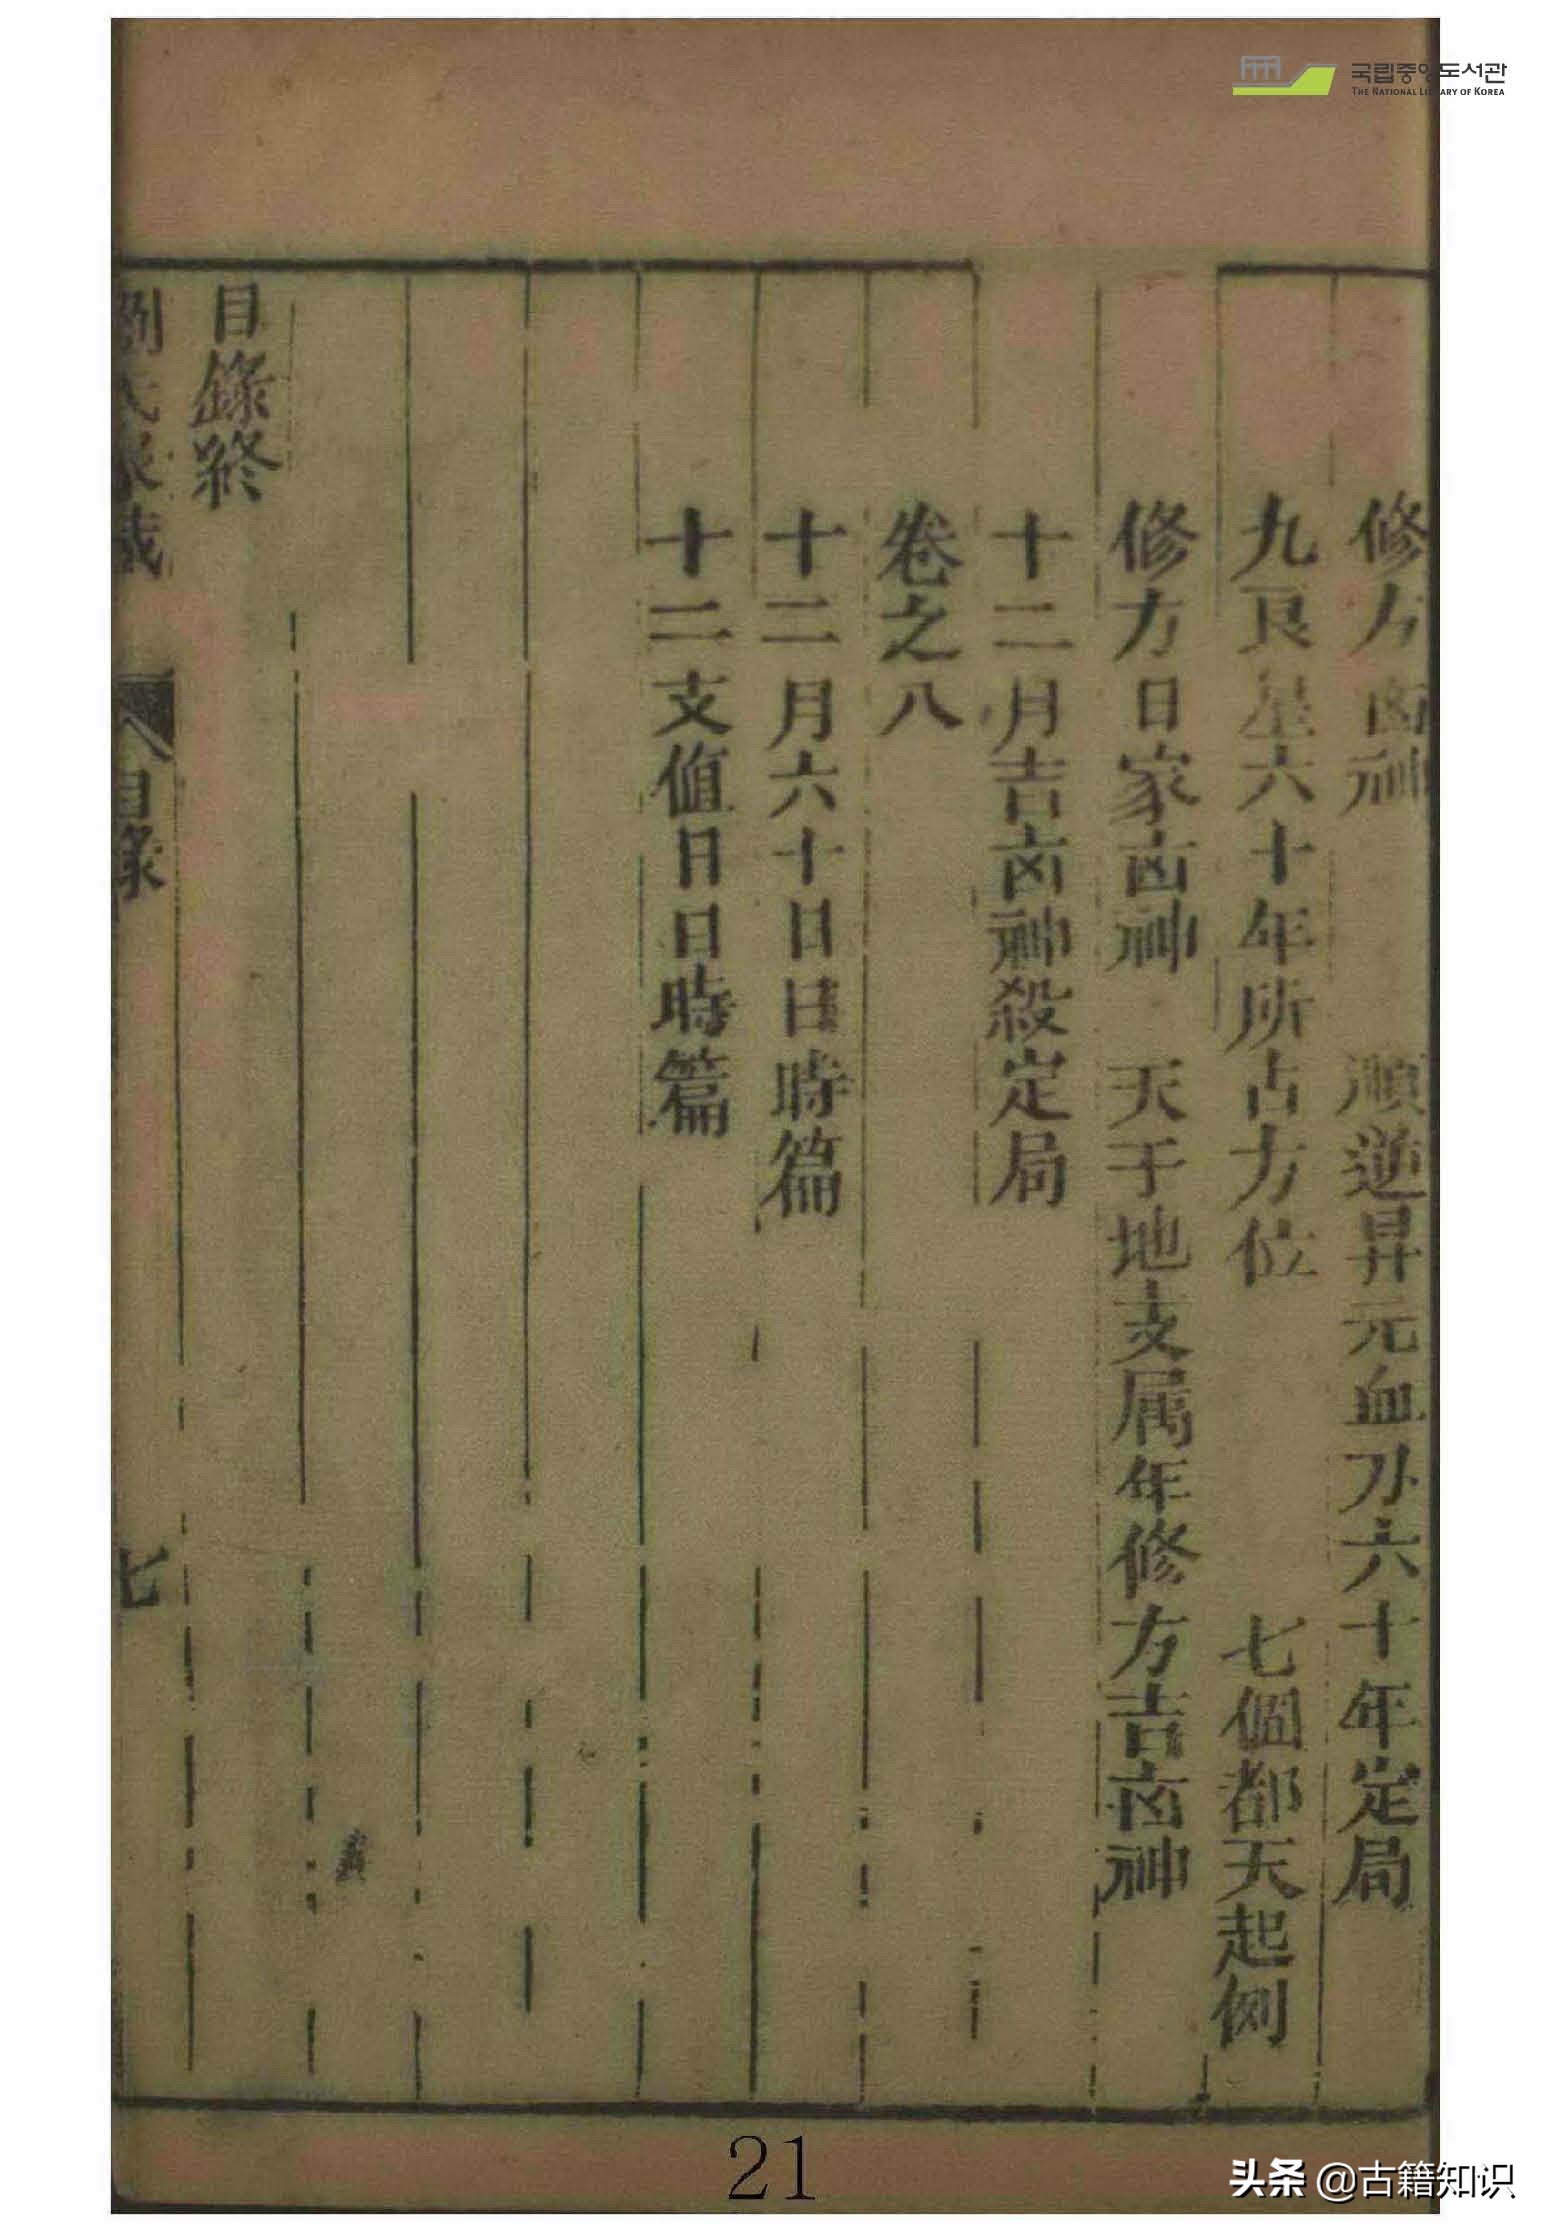 국립중앙도서관
THE NATIONAL LIBRARY OF KOREA
修方凶神　順逆昇元血刃六十年定局
九艮星六十年所占方位　七個都天起例
修方日家凶神　天干地支属年修方吉凶神
十二月吉凶神殺定局
卷之八
十二月六十日日時篇
十二支值日日時篇
目錄終
劉氏家藏　目錄　七
21
头条 @古籍知识